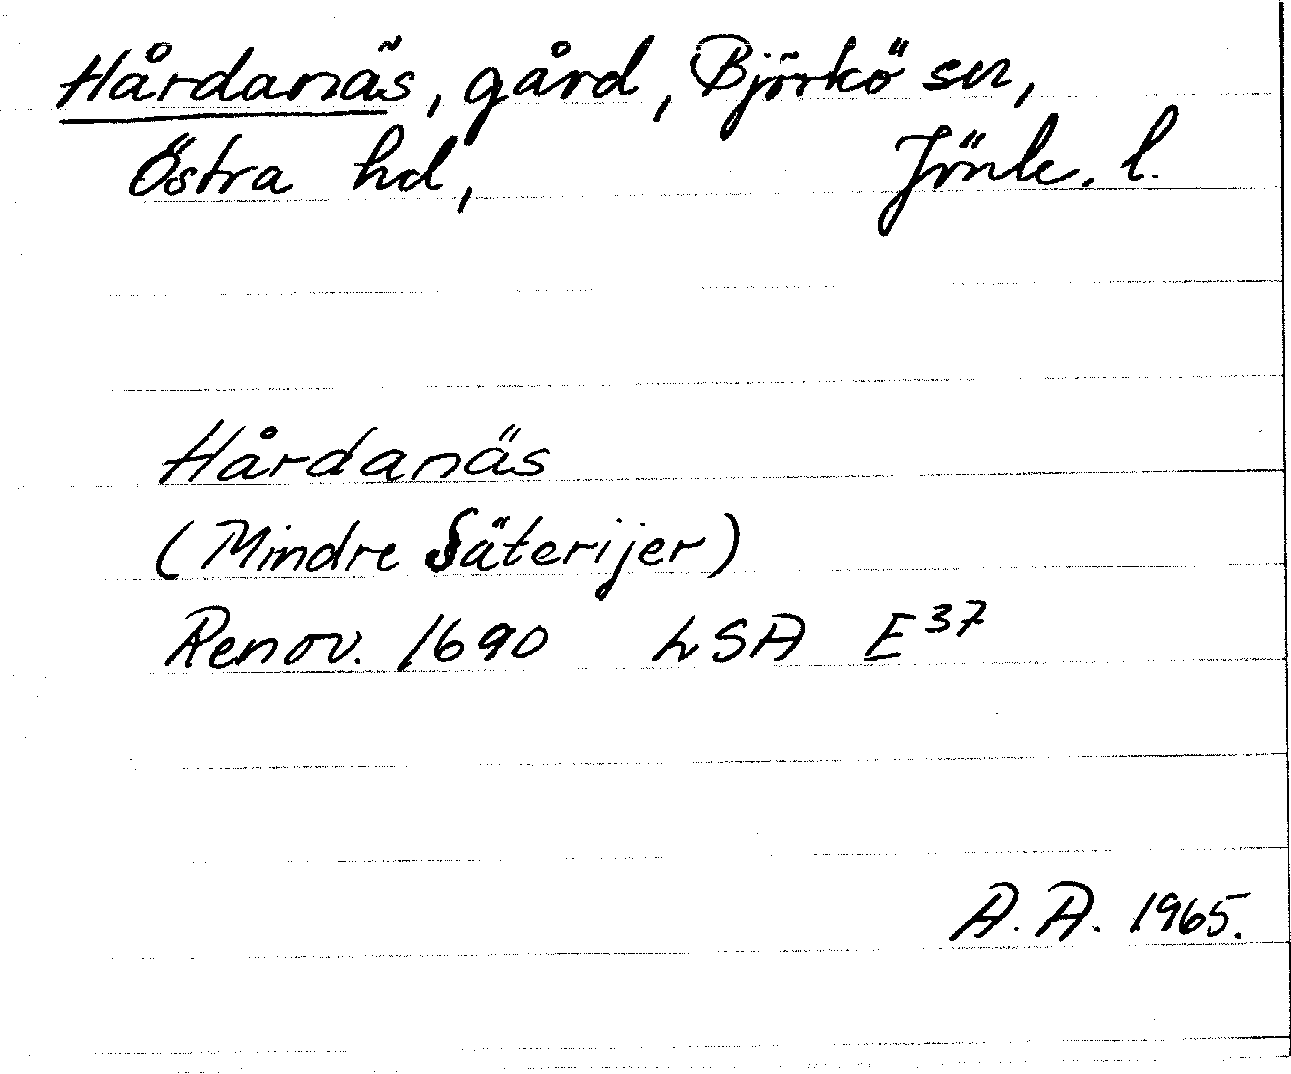 Hårdanäs, gård, Björkö sn,
Östra hd, Jönk. l.
Hårdanäs
(Mindre Säterijer)
Renov. 1690 LSA E³⁷
A.A. 1965.